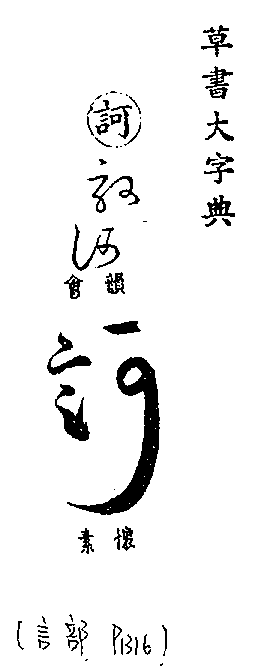 草書大字典
訶
訶
訶
韻會
訶
懷素
(言部 P1316)